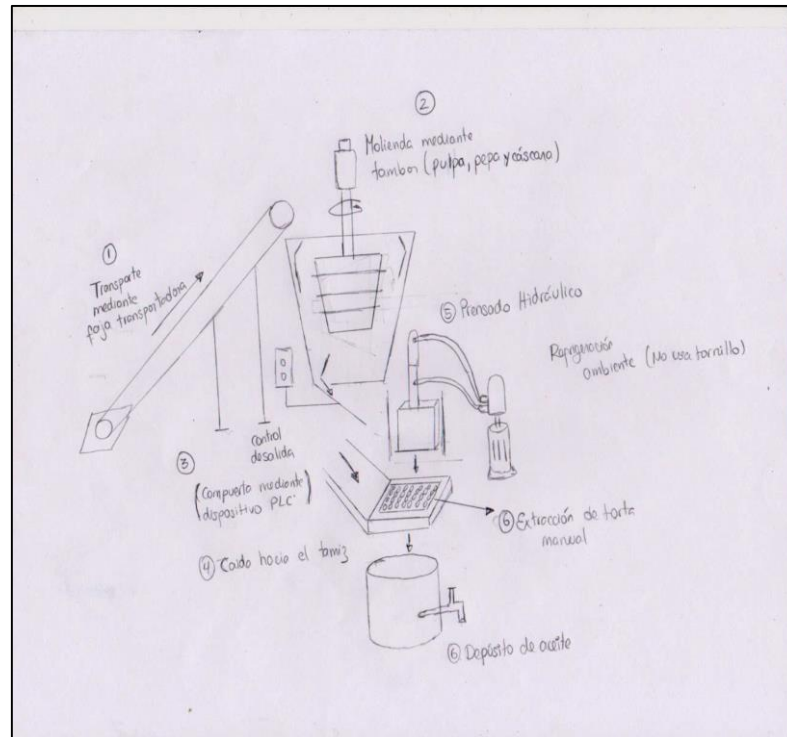 ②
Molienda mediante
tambor (pulpa, pepa y cáscara)
①
Transporte
mediante
faja transportadora
⑤ Prensado Hidráulico
Refrigeración
ambiente (No usa tornillo)
control
de salida
③
(Compuerta mediante
dispositivo PLC)
④ Caida hacia el tamiz
⑥ Extracción de torta
manual
⑥ Depósito de aceite